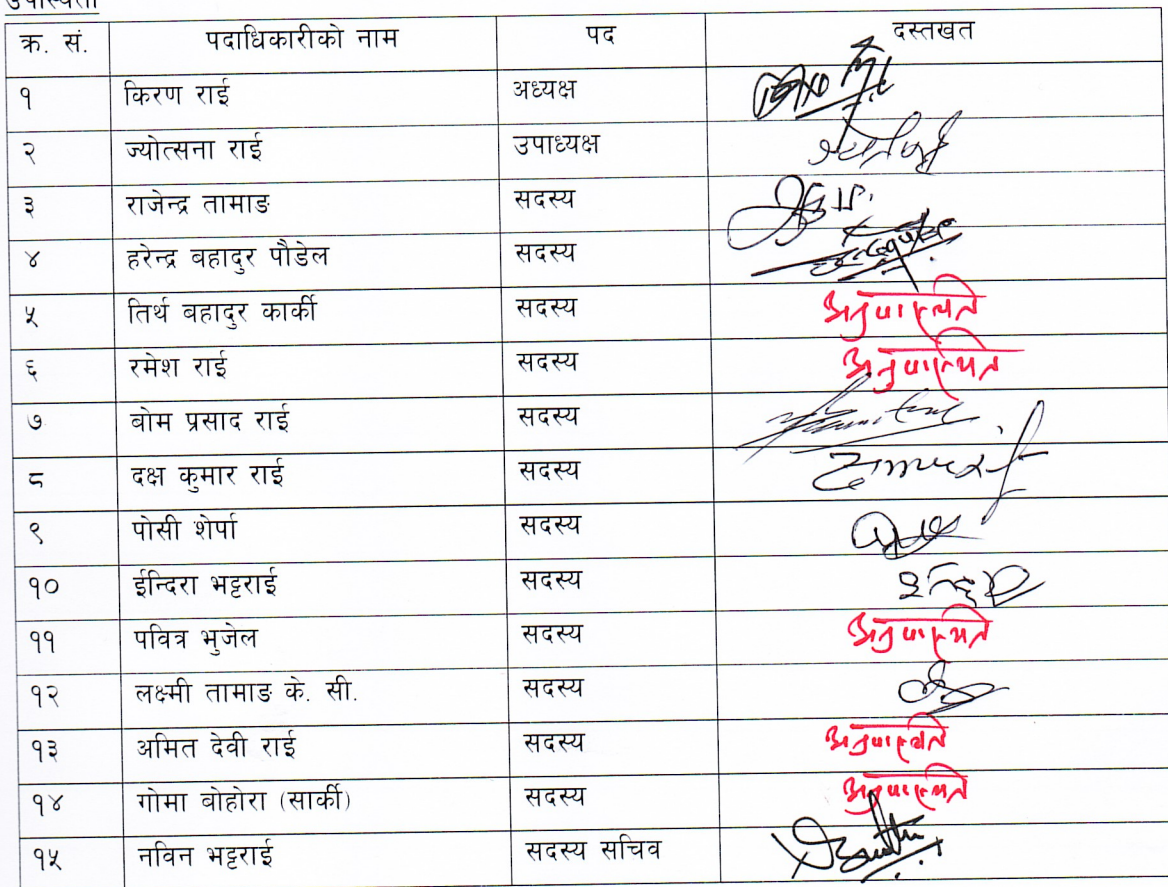 उपस्थिती
क्र. सं. पदाधिकारीको नाम पद दस्तखत
१ किरण राई अध्यक्ष
२ ज्योत्सना राई उपाध्यक्ष
३ राजेन्द्र तामाङ सदस्य
४ हरेन्द्र बहादुर पौडेल सदस्य
५ तिर्थ बहादुर कार्की सदस्य अनुपस्थित
६ रमेश राई सदस्य अनुपस्थित
७ बोम प्रसाद राई सदस्य
८ दक्ष कुमार राई सदस्य
९ पोसी शेर्पा सदस्य
१० ईन्दिरा भट्टराई सदस्य
११ पवित्र भुजेल सदस्य अनुपस्थित
१२ लक्ष्मी तामाङ के. सी. सदस्य
१३ अमित देवी राई सदस्य अनुपस्थित
१४ गोमा बोहोरा (सार्की) सदस्य अनुपस्थित
१५ नविन भट्टराई सदस्य सचिव